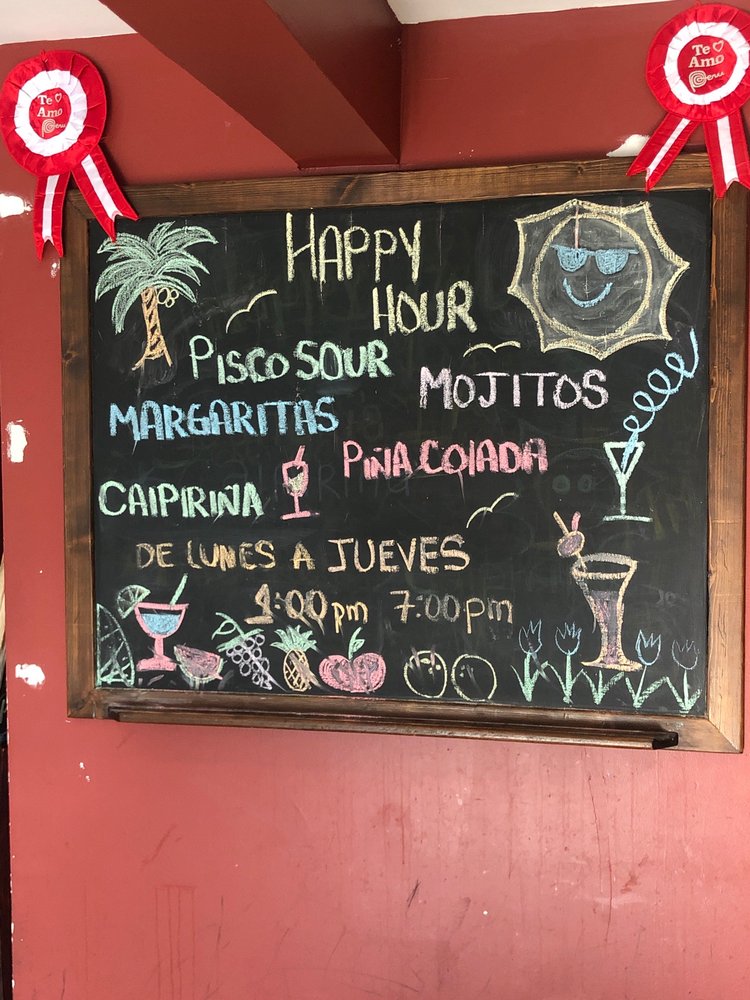 Te
Amo
Perú
Te
Amo
Perú
HAPPY
HOUR
PISCO SOUR
MOJITOS
MARGARITAS
PIÑA COLADA
CAIPIRIÑA
DE LUNES A JUEVES
1:00pm 7:00pm